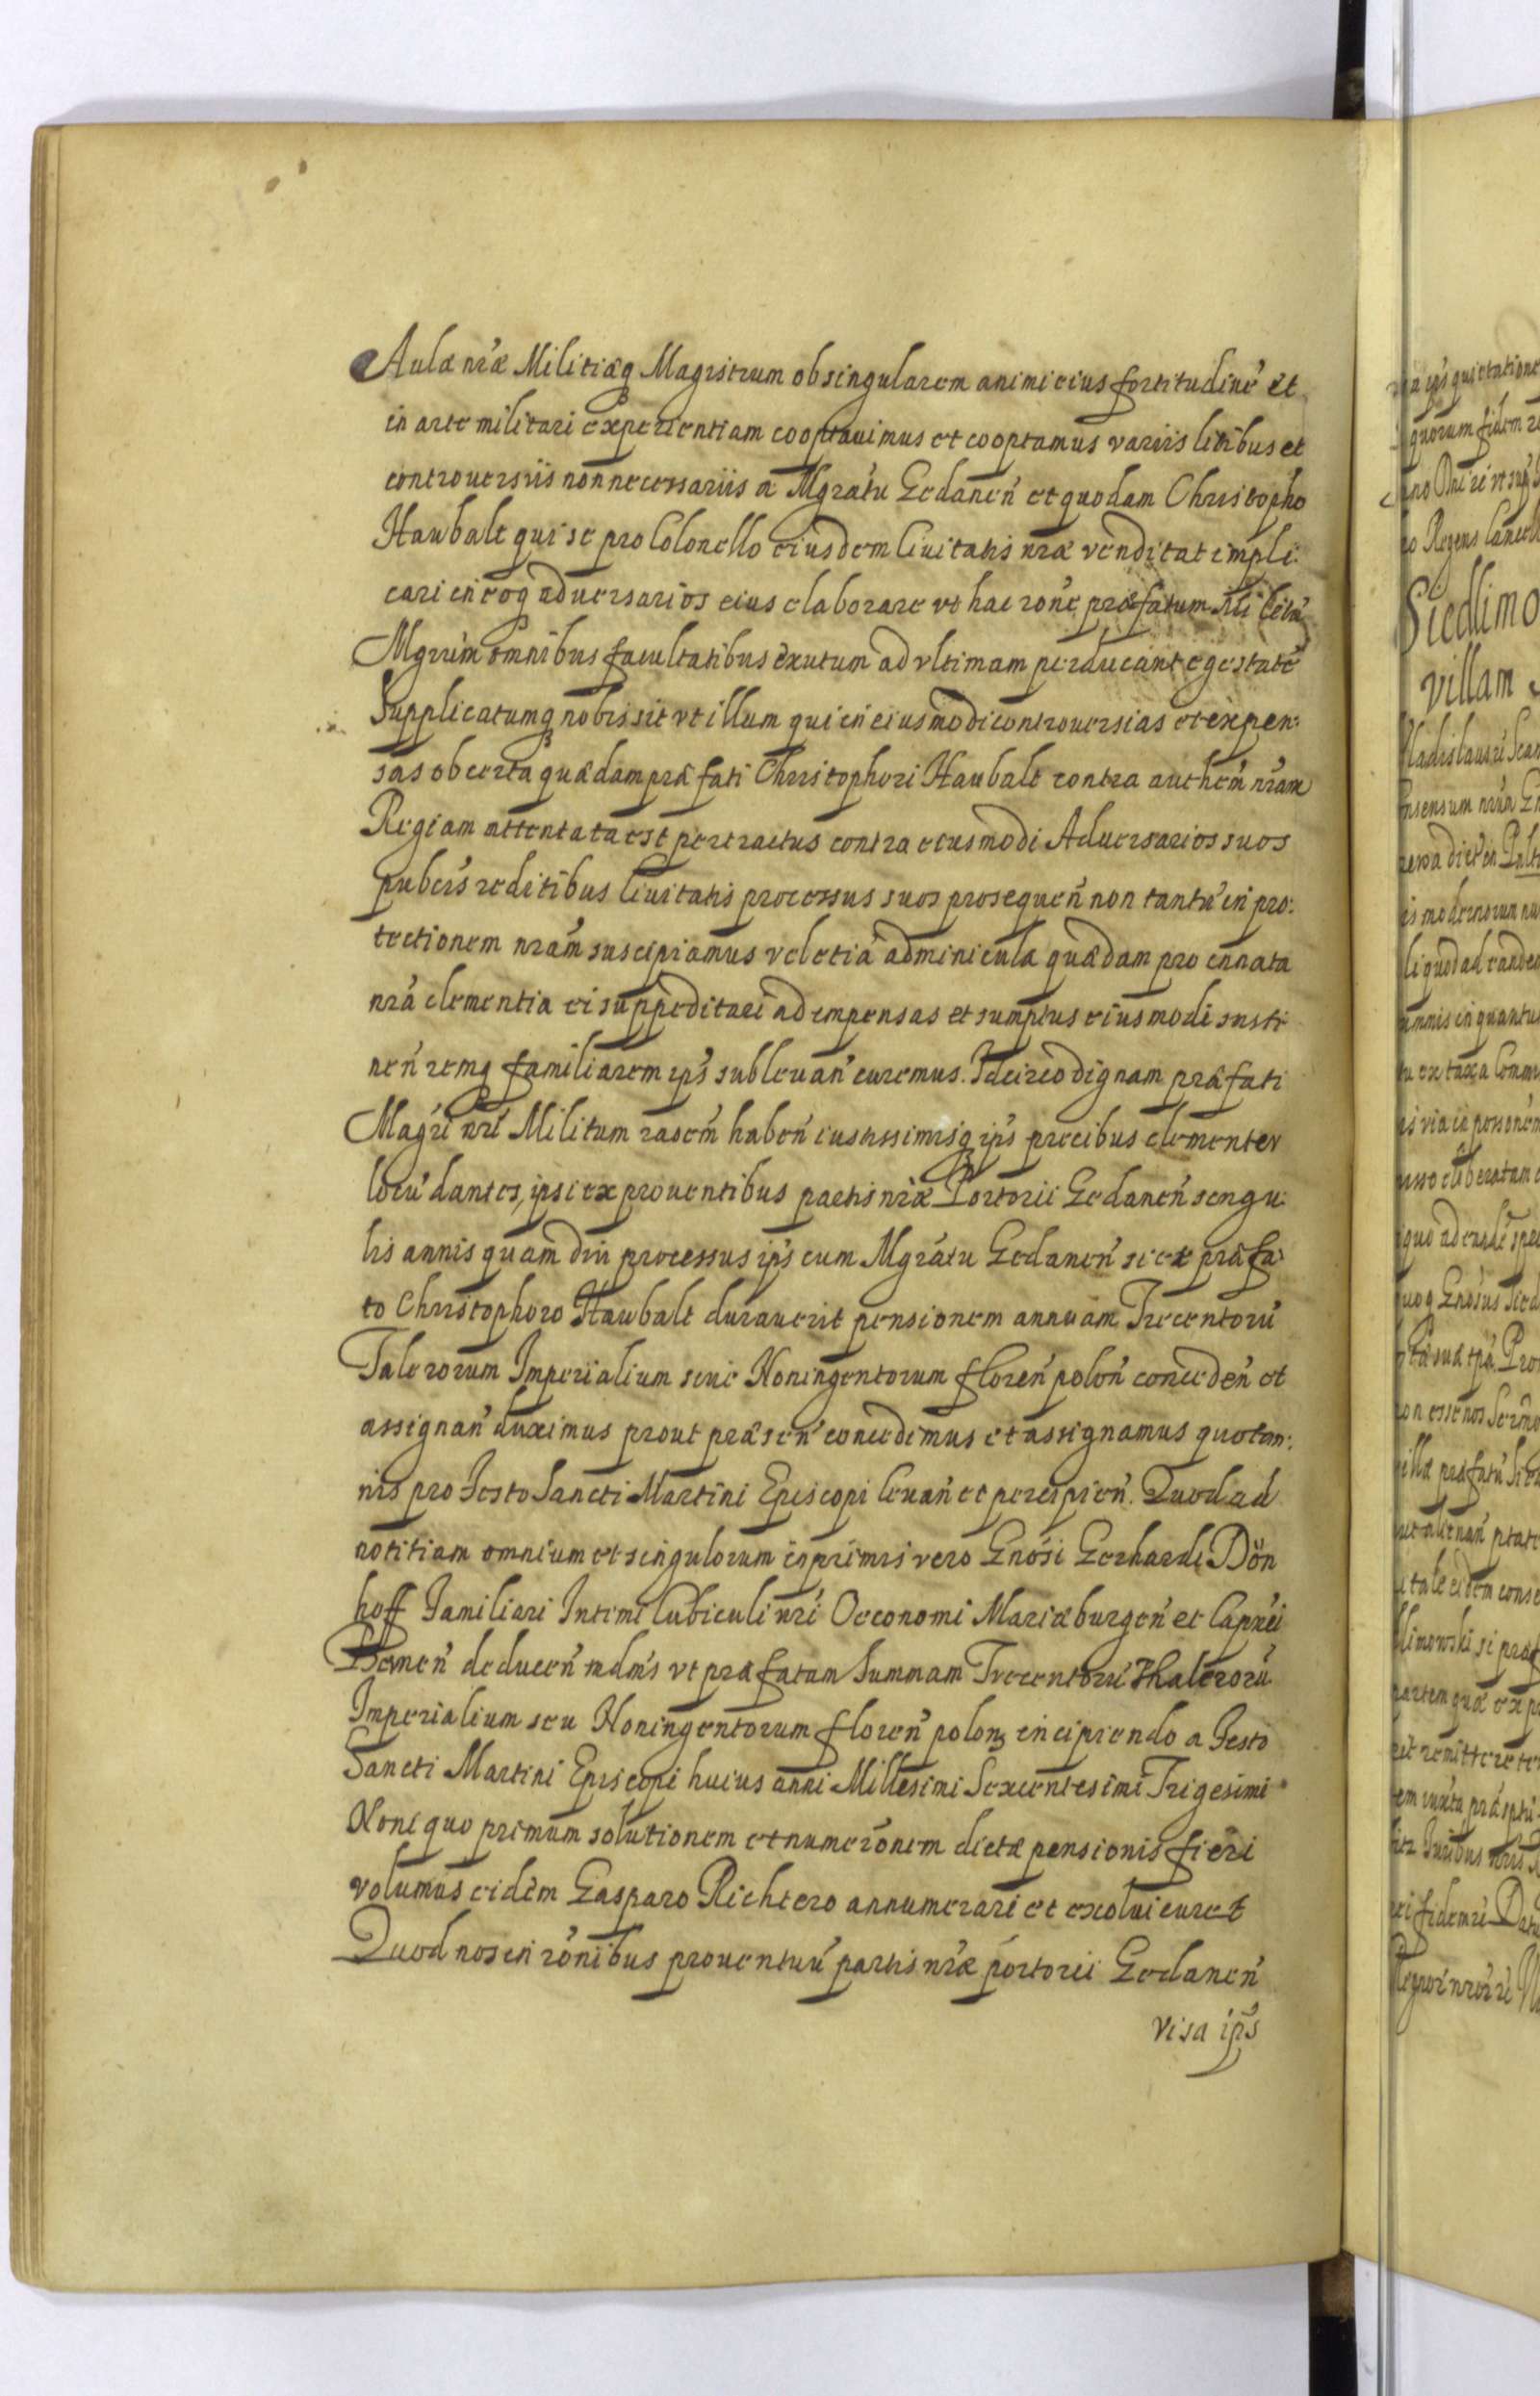 Aulæ nr̃æ Militiæq Magistrum ob singularem animi eius fortitudinẽ et
in arte militari experientiam cooptauimus et cooptamus variis litibus et
controuersiis non necessariis a Mgratu Gedanen̄ et quodam Christopho
Haubalt qui se pro Colonello eiusdem Ciuitatis nræ venditat impli:
cari in eoq aduersarios eius elaborare vt hac rone præfatum Militũ
Mgrum omnibus facultatibus exutum ad vltimam perducant egestatẽ
Supplicatumq nobis sit vt illum qui in eiusmodi controuersias et expen:
sas ob certa quædam præfati Christophori Haubalt contra authem nram
Regiam attentata est pertractus contra eiusmodi Aduersarios suos
pubcis reditibus Ciuitatis processus suos prosequen̄ non tantũ in pro:
tectionem nram suscipiamus vel etiã adminicula quædam pro innata
nrã clementia ei suppeditari ad impensas et sumptus eiusmodi susti
nen̄ remq familiarem ips̃ subleuan̄ curemus. Idcirco dignam præfati
Magri nri Militum raoem haben̄ iustissimisq ips̃ precibus clementer
locũ dantes, ipsi ex prouentibus partis nræ Portorii Gedanen̄ singu:
lis annis quam diu processus ips̃ cum Mgratu Gedanen̄ siue præfa:
to Christophoro Haubalt durauerit pensionem annuam Trecentorũ
Talerorum Imperialium seue Noningentorum floren̄ polon̄ conceden̄ et
assignan̄ duximus prout præsen̄ concedimus et assignamus quotan:
nis pro Festo Sancti Martini Episcopi leuan̄ et percipien̄. Quod ad
notitiam omnium et singulorum inprimis vero Gnosi Gerhardi Dön
hoff Familiari Intimi Cubiculi nri Oeconomi Mariæburgen̄ et Capnei
Bernen̄ deducen̄ mdms vt præfatam Summam Trecentorũ Thalerorũ
Imperialium seu Noningentorum floren̄ polonʒ incipiendo a Festo
Sancti Martini Episcopi huius anni Millesimi Sexcentesimi Trigesimi
Noni quo primum solutionem et numeronem dictæ pensionis fieri
volumus eidem Gasparo Richtero annumerari et exolui curet
Quod nos in ronibus prouentuũ partis nræ portorii Gedanen̄
visa ips̃